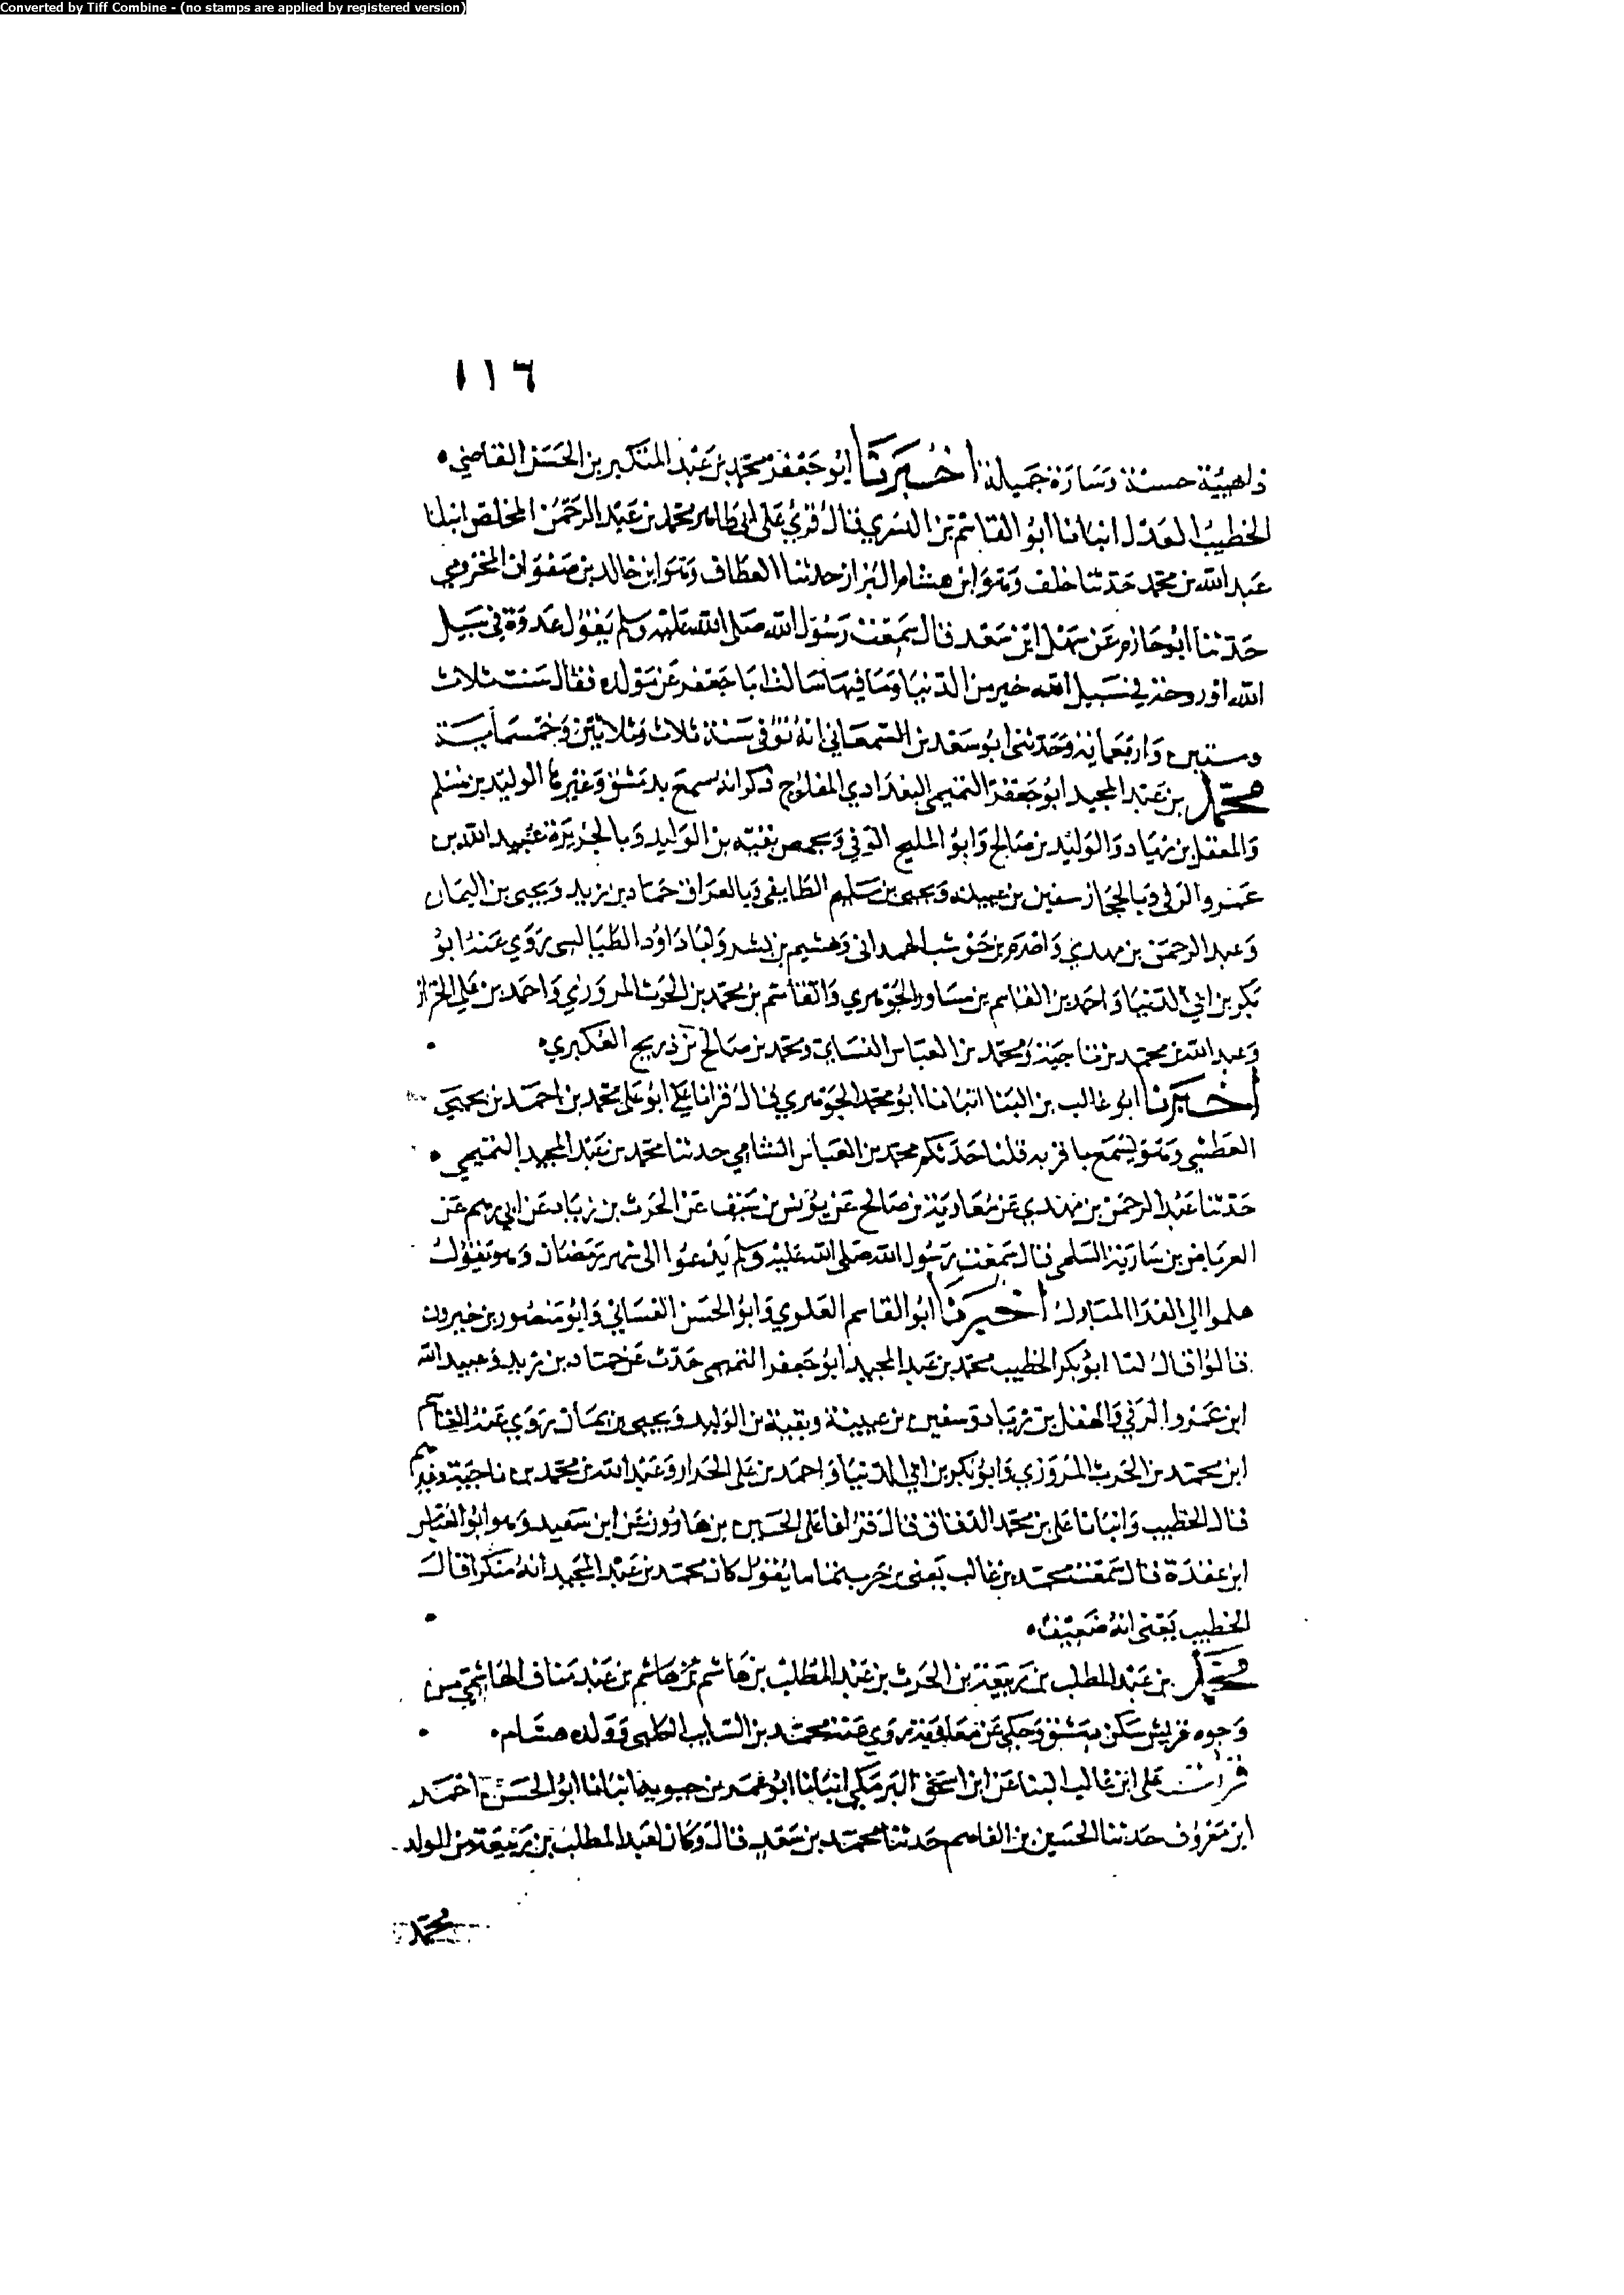 Converted by Tiff Combine - (no stamps are applied by registered version)
١١٦
ذا هيئة حسنة وشارة جميلة اخبرنا ابو جعفر محمد بن عبد المتكبر بن الحسن القاضي
الخطيب العدل انبانا ابو القاسم بن البسري قال قرئ على ابي طاهر محمد بن عبد الرحمن المخلص انبانا
عبد الله بن محمد حدثنا خلف وهو ابن هشام البزاز حدثنا العطاف وهو ابن خالد بن صفوان المخزومي
حدثنا ابو حازم عن سهل ابن سعد قال سمعت رسول الله صلى الله عليه وسلم يقول غدوة في سبيل
الله او روحة في سبيل الله خير من الدنيا وما فيها سالت ابا جعفر عن مولده فقال سنت ثلاث
وستين واربعمائه وحدثنى ابو سعد بن السمعاني انه توفى سنة ثلاث وثلاثين وخمسماية
محمد بن عبد المجيد ابو جعفر التميمي البغدادي المفلوج ذكر انه سمع بدمشق وغيرها الوليد بن مسلم
والمعقل بن زياد والوليد بن صالح وابو المليح الرقي وبحمص بقيه بن الوليد وبالجزيرة عبيد الله بن
عمرو الرقى وبالحجاز سفين بن عيينه ويحيى بن سليم الطايفى وبالعراق حماد بن زيد ويحيى بن اليمان
وعبد الرحمن بن مهدي واصرم بن حوشب الهمدانى وهشيم بن بشير وابا داود الطيالسى روي عنه ابو
بكر بن ابي الدنيا واحمد بن القاسم بن مساور الجوهري والقاسم بن محمد بن الحرث المروزي واحمد بن علي الخزاز
وعبد الله بن محمد بن ناجية ومحمد بن العباس النساي ومحمد بن صالح بن ذريح العكبري
اخبرنا ابو غالب بن البنا انبانا ابو محمد الجوهري قال قرانا على ابو على محمد بن احمد بن يحيى
العطشى وهو يسمع با قر به قلنا حدثكم محمد بن العباس الشامي حدثنا محمد بن عبد المجيد التميمي
حدثنا عبد الرحمن بن مهدي عن معاوية بن صالح عن يونس بن سيف عن الحرث بن زياد عن ابي رهم عن
العرباض بن سارية السلمى قال سمعت رسول الله صلى الله عليه وسلم يدعوا الى شهر رمضان وهو يقول
هلموا الي الغدا المبارك اخبرنا ابو القاسم العلوي وابو الحسن الغساني وابو منصور بن خيرون
قالوا قال لنا ابو بكر الخطيب محمد بن عبد المجيد ابو جعفر التميمى حدث عن حماد بن زيد وعبيد الله
ابن عمرو الرقي والهقل بن زياد وسفين بن عيينة وبقية بن الوليد ويحيى بن يمان روي عنه القاسم
ابن محمد بن الحرث المروزي وابو بكر بن ابي الدنيا واحمد بن على الخزار وعبد الله بن محمد بن ناجية وغيرهم
قال الخطيب وانبانا على بن محمد الدقاق قال قرانا على الحسين بن هارون عن ابن سعيد وهو ابو العباس
ابن عقدة قال سمعت محمد بن غالب يعنى بن حرب تمتاما يقول كان محمد بن عبد المجيد انه منكرا قال
الخطيب يعنى انه ضعيف
محمد بن عبد المطلب بن ربيعة بن الحرث بن عبد المطلب بن هاشم بن هاشم بن عبد مناف الهاشمي من
وجوه قريش سكن دمشق وحكى عن معاوية روي عنه محمد بن السايب الكلبى وولده هشام
قرات على ابن غالب البنا عن ابن اسحق البرمكي انبانا ابو عمر بن حيويه انبانا ابو الحسن احمد
ابن معروف حدثنا الحسين بن القاسم حدثنا محمد بن سعد قال وكان لعبد المطلب بن ربيعة من الولد
محمد